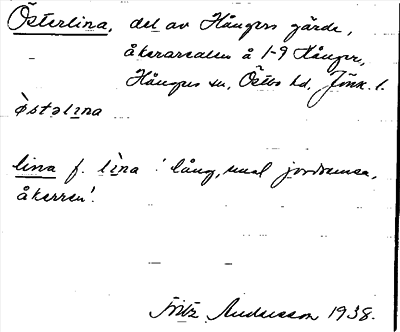 Österlina, del av Hångers gärde,
åkerarealen å 1-9 Hånger,
Hångers sn, Östbo hd, Jönk. l.
ò̀stəlı̣na
lina f. lı̣̀na 'lång, smal jordremsa,
åkerren'.
Fritz Andersson 1938.